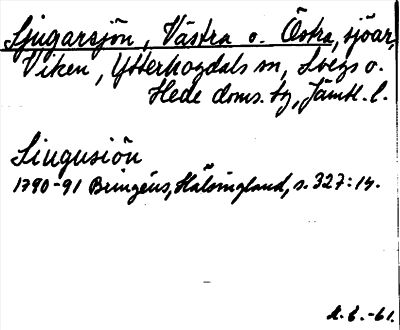 Ljugarsjön, Västra o. Östra, sjöar,
Viken, Ytterhogdals sn, Svegs o.
Hede doms. tg, Jämtl. l.
Liugusiön
1790-91 Bringéus, Hälsingland, s. 327: 14.
-61.